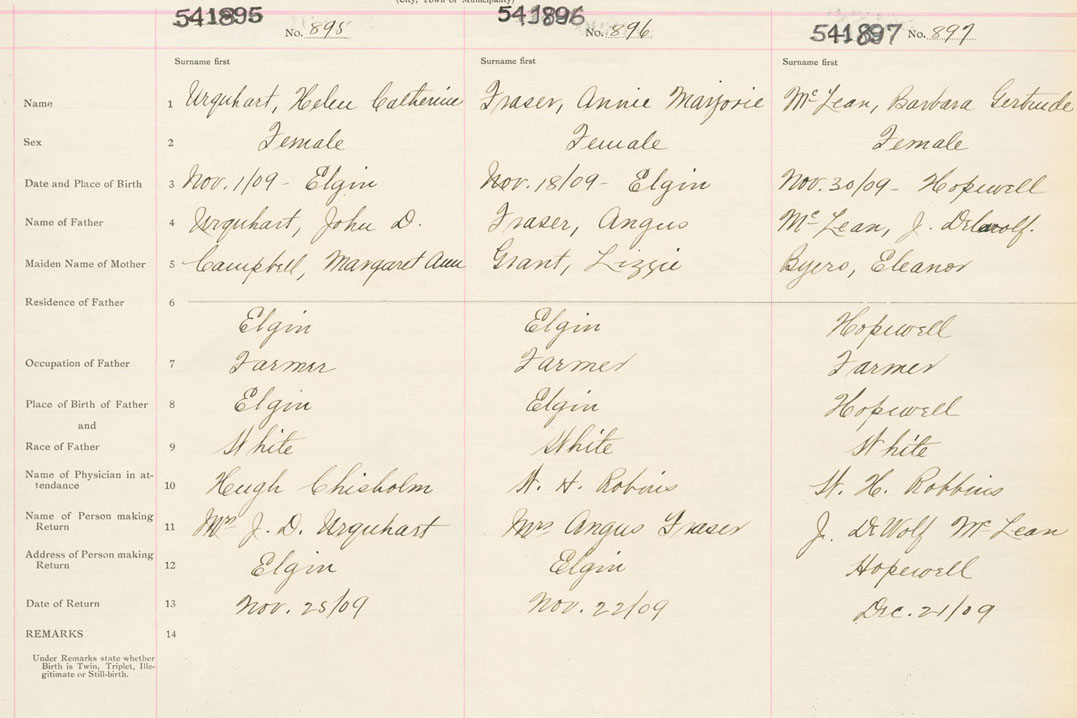 (City, Town or Municipality)
541895 541896 541897
No. 895 No. 896 No. 897
Surname first Surname first Surname first
Name 1 Urquhart, Helen Catherine Fraser, Annie Marjorie McLean, Barbara Gertrude
Sex 2 Female Female Female
Date and Place of Birth 3 Nov. 1/09 - Elgin Nov. 18/09 - Elgin Nov. 30/09 - Hopewell
Name of Father 4 Urquhart, John D. Fraser, Angus McLean, J. DeWolf.
Maiden Name of Mother 5 Campbell, Margaret Ann Grant, Lizzie Byers, Eleanor
Residence of Father 6
Elgin Elgin Hopewell
Occupation of Father 7 Farmer Farmer Farmer
Place of Birth of Father 8 Elgin Elgin Hopewell
and
Race of Father 9 White White White
Name of Physician in at-
tendance 10 Hugh Chisholm W. H. Robins W. H. Robbins
Name of Person making
Return 11 Mrs J. D. Urquhart Mrs Angus Fraser J. DeWolf McLean
Address of Person making
Return 12 Elgin Elgin Hopewell
Date of Return 13 Nov. 25/09 Nov. 22/09 Dec. 21/09
REMARKS 14
Under Remarks state whether
Birth is Twin, Triplet, Ille-
gitimate or Still-birth.